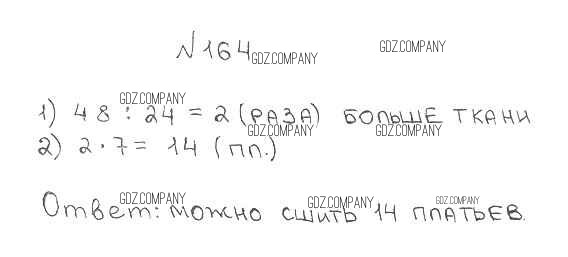 №164
GDZ.COMPANY
GDZ.COMPANY
GDZ.COMPANY
1) 48 : 24 = 2 (РАЗА) БОЛЬШЕ ТКАНИ
GDZ.COMPANY
GDZ.COMPANY
2) 2 · 7 = 14 (ПЛ.)
GDZ.COMPANY
GDZ.COMPANY
GDZ.COMPANY
Ответ: можно сшить 14 платьев.